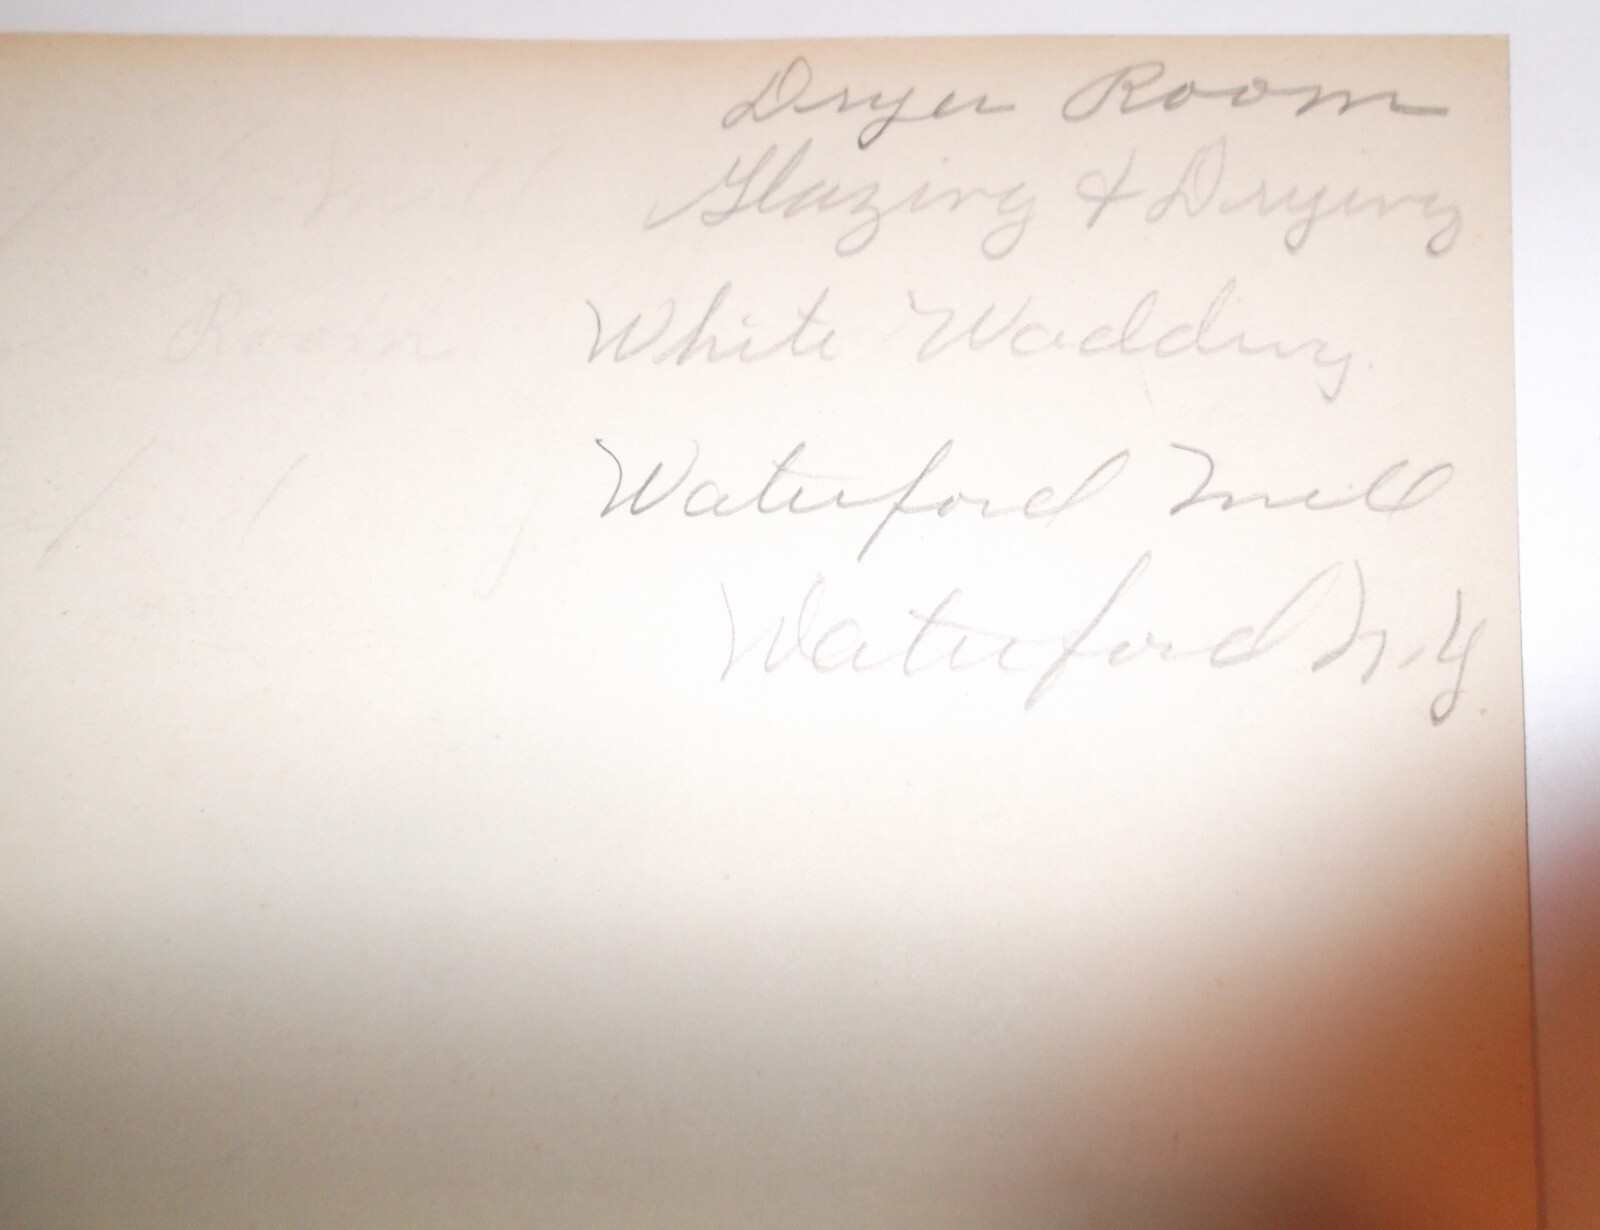 Dryer Room
Glazing & Drying
White Wadding.
Waterford Mill
Waterford N.Y.
Mill
Room